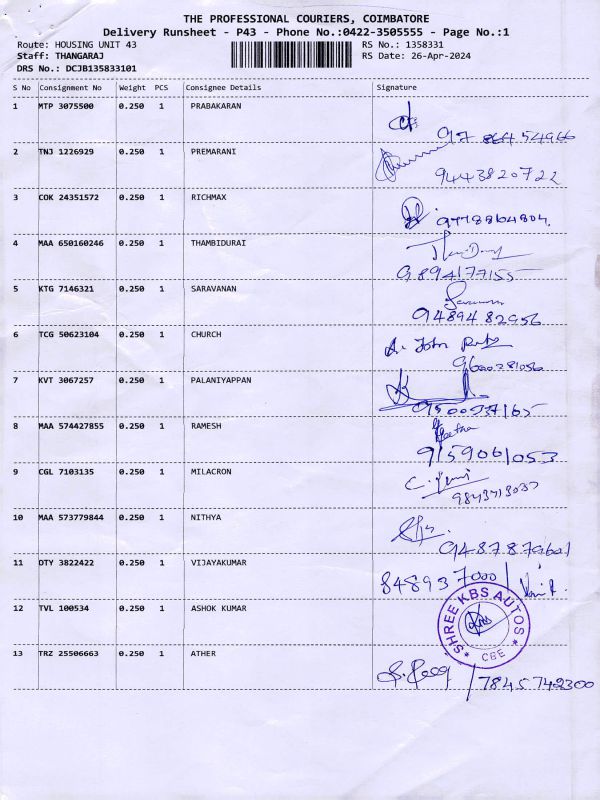 THE PROFESSIONAL COURIERS, COIMBATORE
Delivery Runsheet - P43 - Phone No.:0422-3505555 - Page No.:1
Route: HOUSING UNIT 43 RS No.: 1358331
Staff: THANGARAJ RS Date: 26-Apr-2024
DRS No.: DCJB135833101
S No Consignment No Weight PCS Consignee Details Signature
1 MTP 3075500 0.250 1 PRABAKARAN
2 TNJ 1226929 0.250 1 PREMARANI
9443820722
3 COK 24351572 0.250 1 RICHMAX
9778864804.
4 MAA 650160246 0.250 1 THAMBIDURAI
9894177155
5 KTG 7146321 0.250 1 SARAVANAN
9489482956
6 TCG 50623104 0.250 1 CHURCH
A. John
9600281056
7 KVT 3067257 0.250 1 PALANIYAPPAN
9500937165
8 MAA 574427855 0.250 1 RAMESH
9159061053
9 CGL 7103135 0.250 1 MILACRON
10 MAA 573779844 0.250 1 NITHYA
9487879601
11 DTY 3822422 0.250 1 VIJAYAKUMAR
848937000
12 TVL 100534 0.250 1 ASHOK KUMAR
SHREE KBS AUTOS
* CBE *
13 TRZ 25506663 0.250 1 ATHER
7845742300